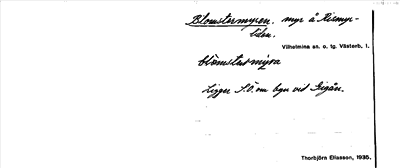 Blomstermyren. myr å Rismyr-
liden.
Vilhelmina sn. o. tg. Västerb. l.
blòmstermýra
Ligger S.O. om byn vid
Thorbjörn Eliasson, 1935.